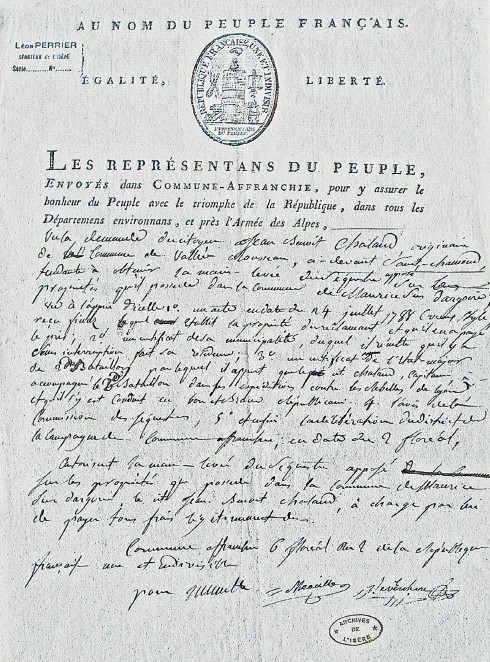 AU NOM DU PEUPLE FRANÇAIS.
LÉON PERRIER
SÉNATEUR de L'ISÈRE
Série......... N°.......
ÉGALITÉ, LIBERTÉ.
RÉPUBLIQUE FRANÇAISE, UNE ET INDIVISIBLE
LES REPRÉSENTANS DU PEUPLE,
ENVOYÉS dans COMMUNE-AFFRANCHIE, pour y assurer le
bonheur du Peuple avec le triomphe de la République, dans tous les
Départemens environnans, et près l'Armée des Alpes,
Vu la demande du citoyen Jean Benoit Chaland originaire
de Commune de Vallée Rousseau, ci-devant Saint-Chamond
tendante à obtenir la main levée du Sequestre apposé sur
propriétés qu'il possede dans la Commune de Maurice sur dargoire
un acte en date du 24 juillet 1788
reçu établit la propriété du réclamant et qu'il en a payé
le prix, 2° un certificat de sa municipalité duquel il résulte qu'il y a
sans interruption fait sa résidence; 3° un certificat de l'Etat-major
du Bataillon par lequel il appert que le cit chaland, capitaine
a accompagné le Bataillon dans les expéditions contre les rebelles de Lyon
et qu'il s'y est conduit en bon et brave Républicain 4° l'avis de la
Commission des séquestres, 5° et enfin la délibération du district de
la Campagne de Commune affranchie, en date du 2 floréal,
Autorisent la main-levée du Sequestre apposé
sur les propriétés que possede dans la Commune de Maurice
sur dargoire le cit. Jean Benoit Chaland, à charge par lui
de payer tous frais légitimement dus.
Commune affranchie 6 floréal an 2 de la République
française une et Indivisible
pour
ARCHIVES
DE
L'ISÈRE